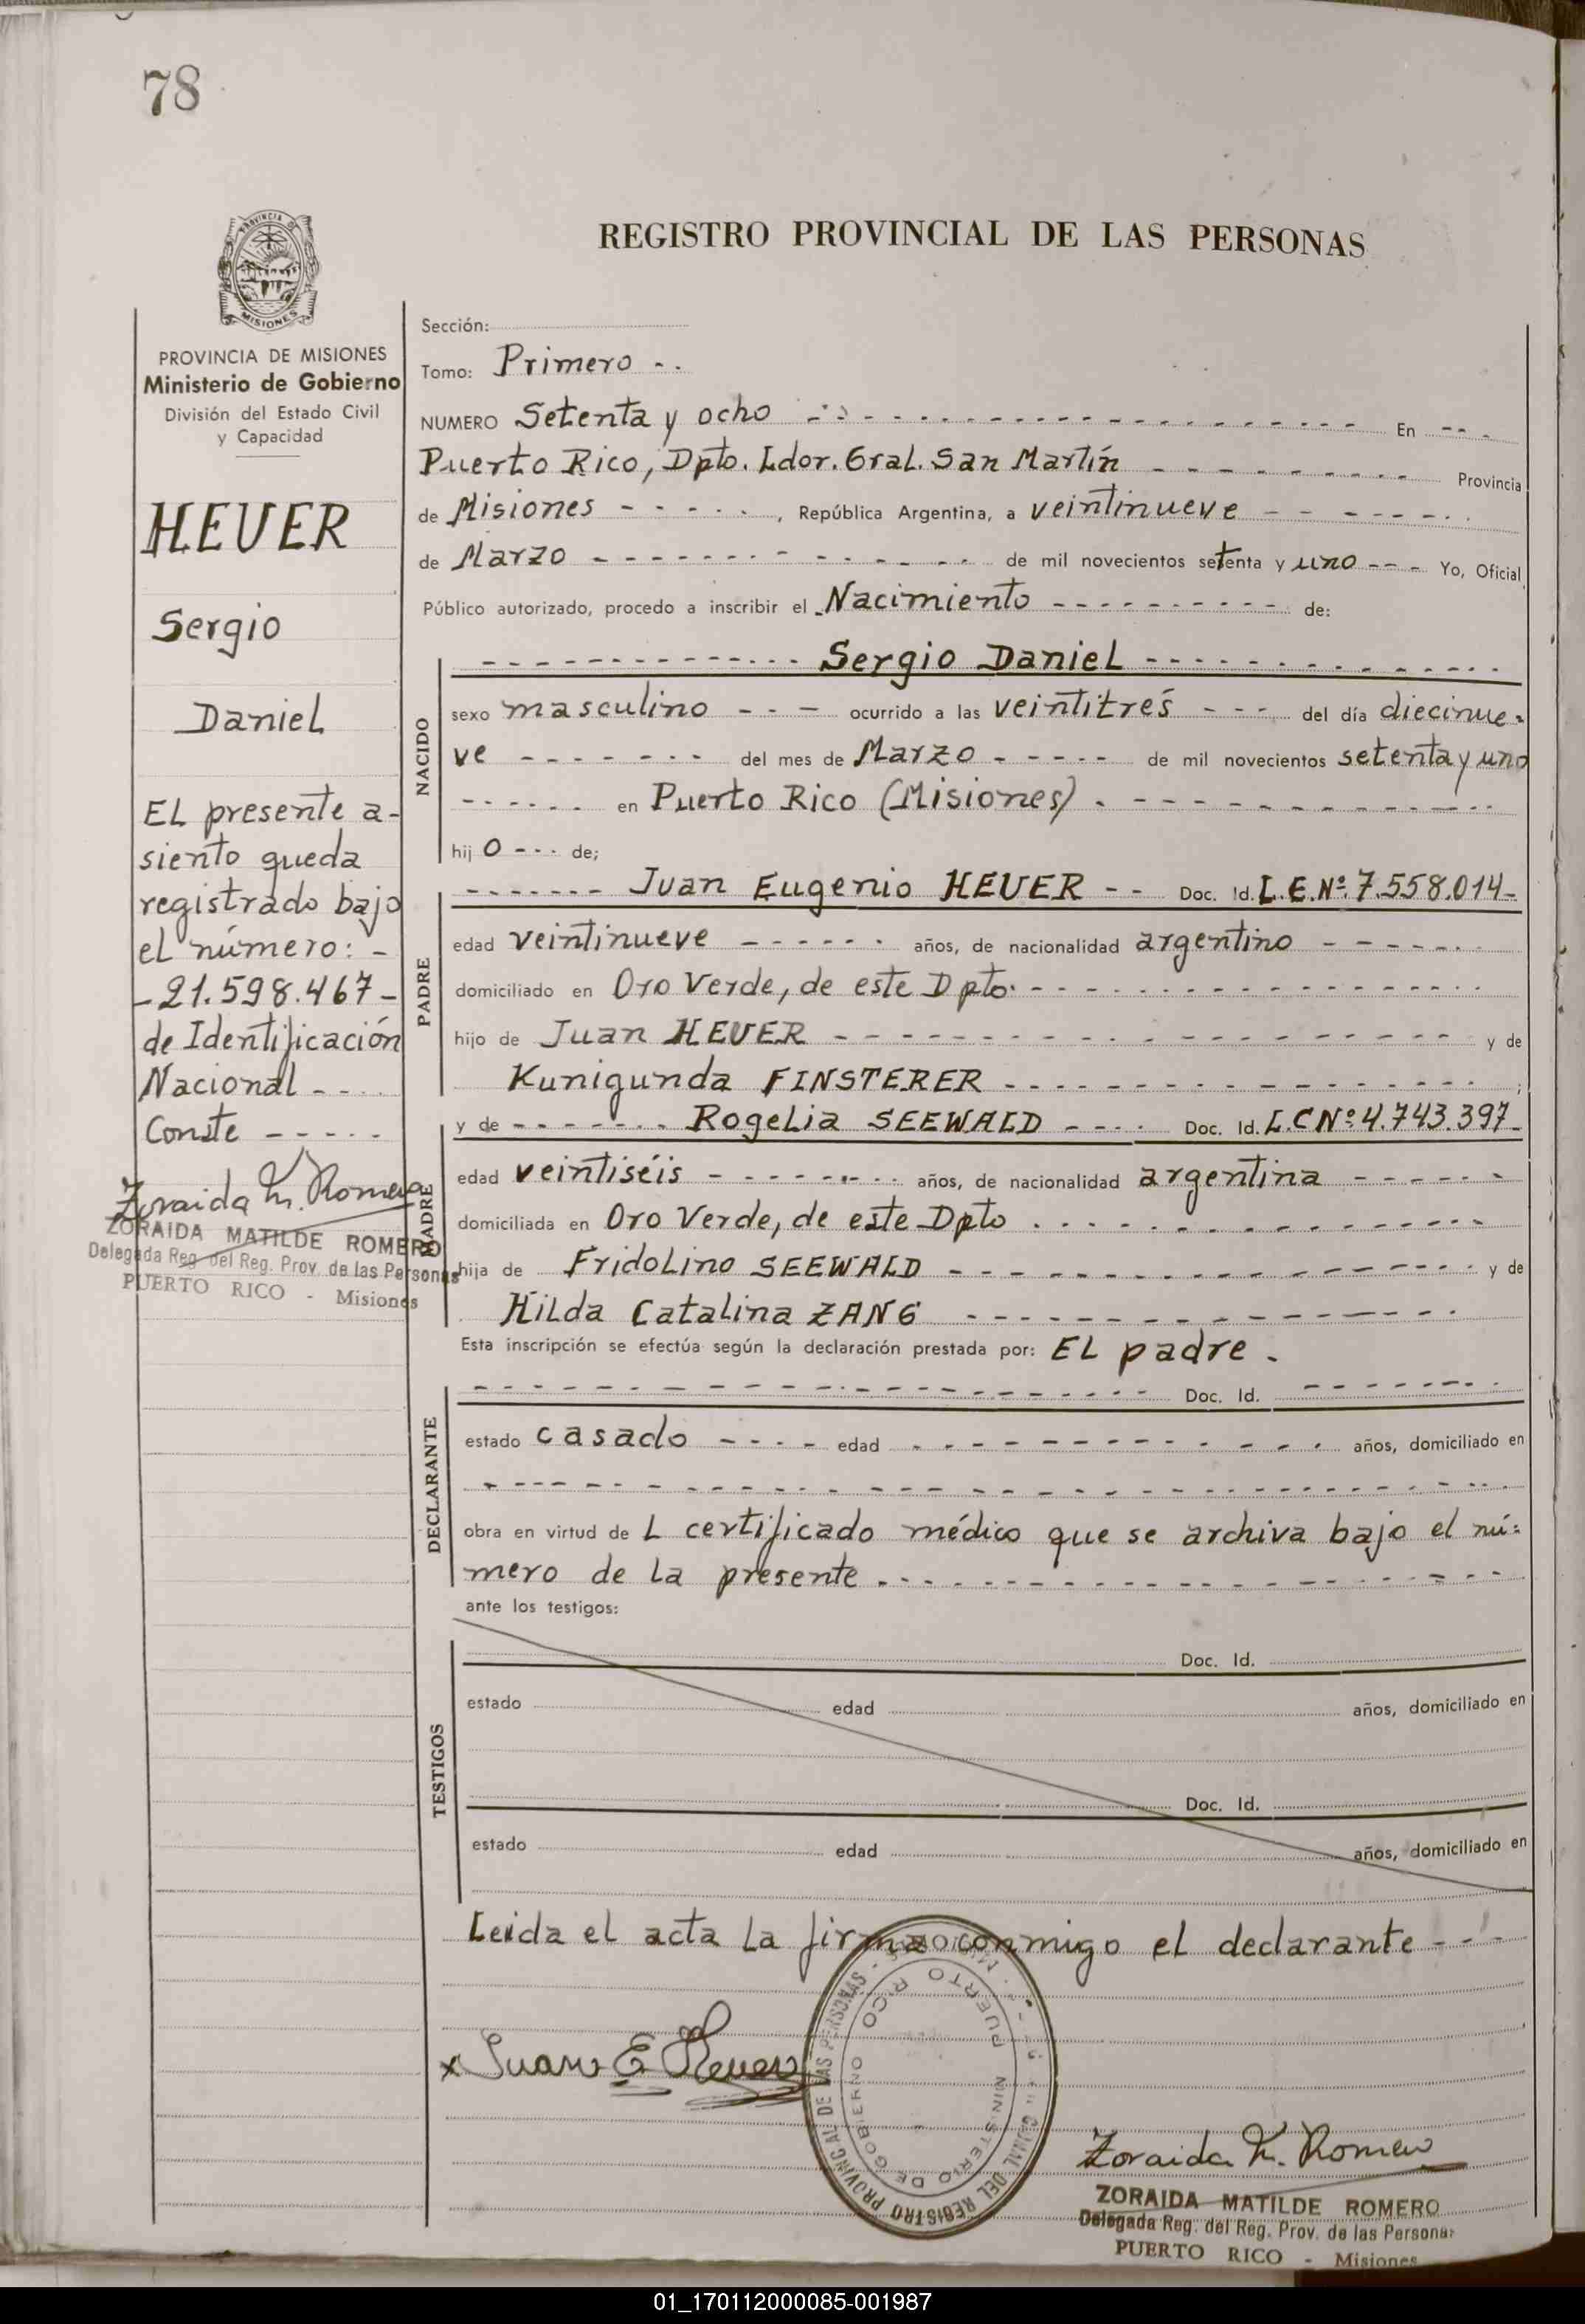 78
REGISTRO PROVINCIAL DE LAS PERSONAS
PROVINCIA
MISIONES
PROVINCIA DE MISIONES
Ministerio de Gobierno
División del Estado Civil
y Capacidad
HEUER
Sergio
Daniel
EL presente a-
siento queda
registrado bajo
el número: -
- 21.598.467 -
de Identificación
Nacional - - - -
Conste - - - - -
Zoraida M. Romero
ZORAIDA MATILDE ROMERO
Delegada Reg. del Reg. Prov. de las Personas
PUERTO RICO - Misiones
Sección:
Tomo: Primero - .
NUMERO Setenta y ocho - - - - En - - -
Puerto Rico, Dpto. Ldor. Gral. San Martín - - - - Provincia
de Misiones - - - - - , República Argentina, a veintinueve - - - - -
de Marzo - - - - de mil novecientos setenta y uno - - - Yo, Oficial
Público autorizado, procedo a inscribir el Nacimiento - - - - de:
NACIDO
- - - - Sergio Daniel - - - -
sexo masculino - - - ocurrido a las veintitrés - - - del día diecinue-
ve - - - - del mes de Marzo - - - - de mil novecientos setenta y uno
- - - - en Puerto Rico (Misiones) . - - - -
hij o - - - de;
PADRE
- - - - Juan Eugenio HEUER - - Doc. Id. L.E.Nº. 7.558.014-
edad veintinueve - - - - años, de nacionalidad argentino - - - -
domiciliado en Oro Verde, de este Dpto. - - - -
hijo de Juan HEUER - - - - y de
Kunigunda FINSTERER - - - - ;
MADRE
y de - - - - Rogelia SEEWALD - - - - Doc. Id. L.C Nº. 4.743.397-
edad veintiséis - - - - años, de nacionalidad argentina - - - -
domiciliada en Oro Verde, de este Dpto . - - - -
hija de Fridolino SEEWALD - - - - y de
Hilda Catalina ZANG - - - -
Esta inscripción se efectúa según la declaración prestada por: EL padre .
DECLARANTE
- - - - Doc. Id. - - - -
estado casado - - - - edad - - - - años, domiciliado en
- - - -
obra en virtud de L certificado médico que se archiva bajo el nú-
mero de la presente . - - - -
ante los testigos:
TESTIGOS
Doc. Id.
estado edad años, domiciliado en
Doc. Id.
estado edad años, domiciliado en
Leída el acta la firma conmigo el declarante - - -
x Juan E Heuer
PROVINCIAL DE LAS PERSONAS
DEL REGISTRO
MINISTERIO DE GOBIERNO
PUERTO RICO
Zoraida M. Romero
ZORAIDA MATILDE ROMERO
Delegada Reg. del Reg. Prov. de las Personas
PUERTO RICO - Misiones
01_170112000085-001987